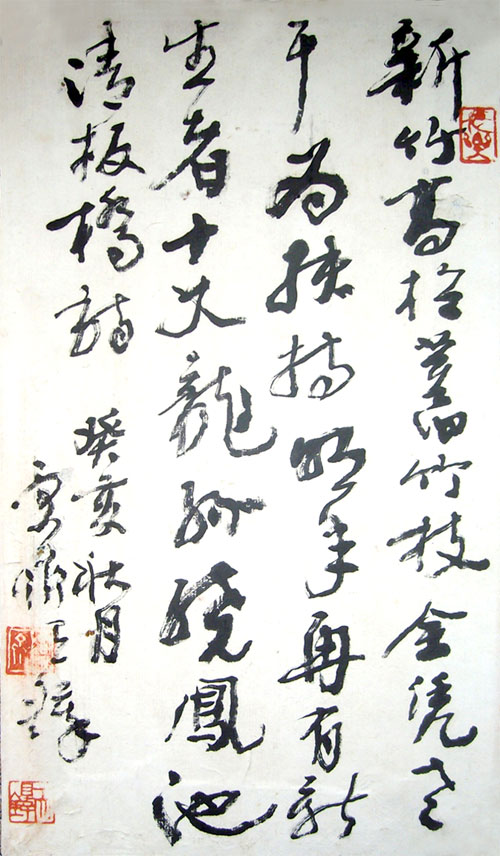 新竹高於舊竹枝全凭老
干為扶持明年再有新
生者十丈龍孫繞鳳池
清板橋詩
癸亥秋月